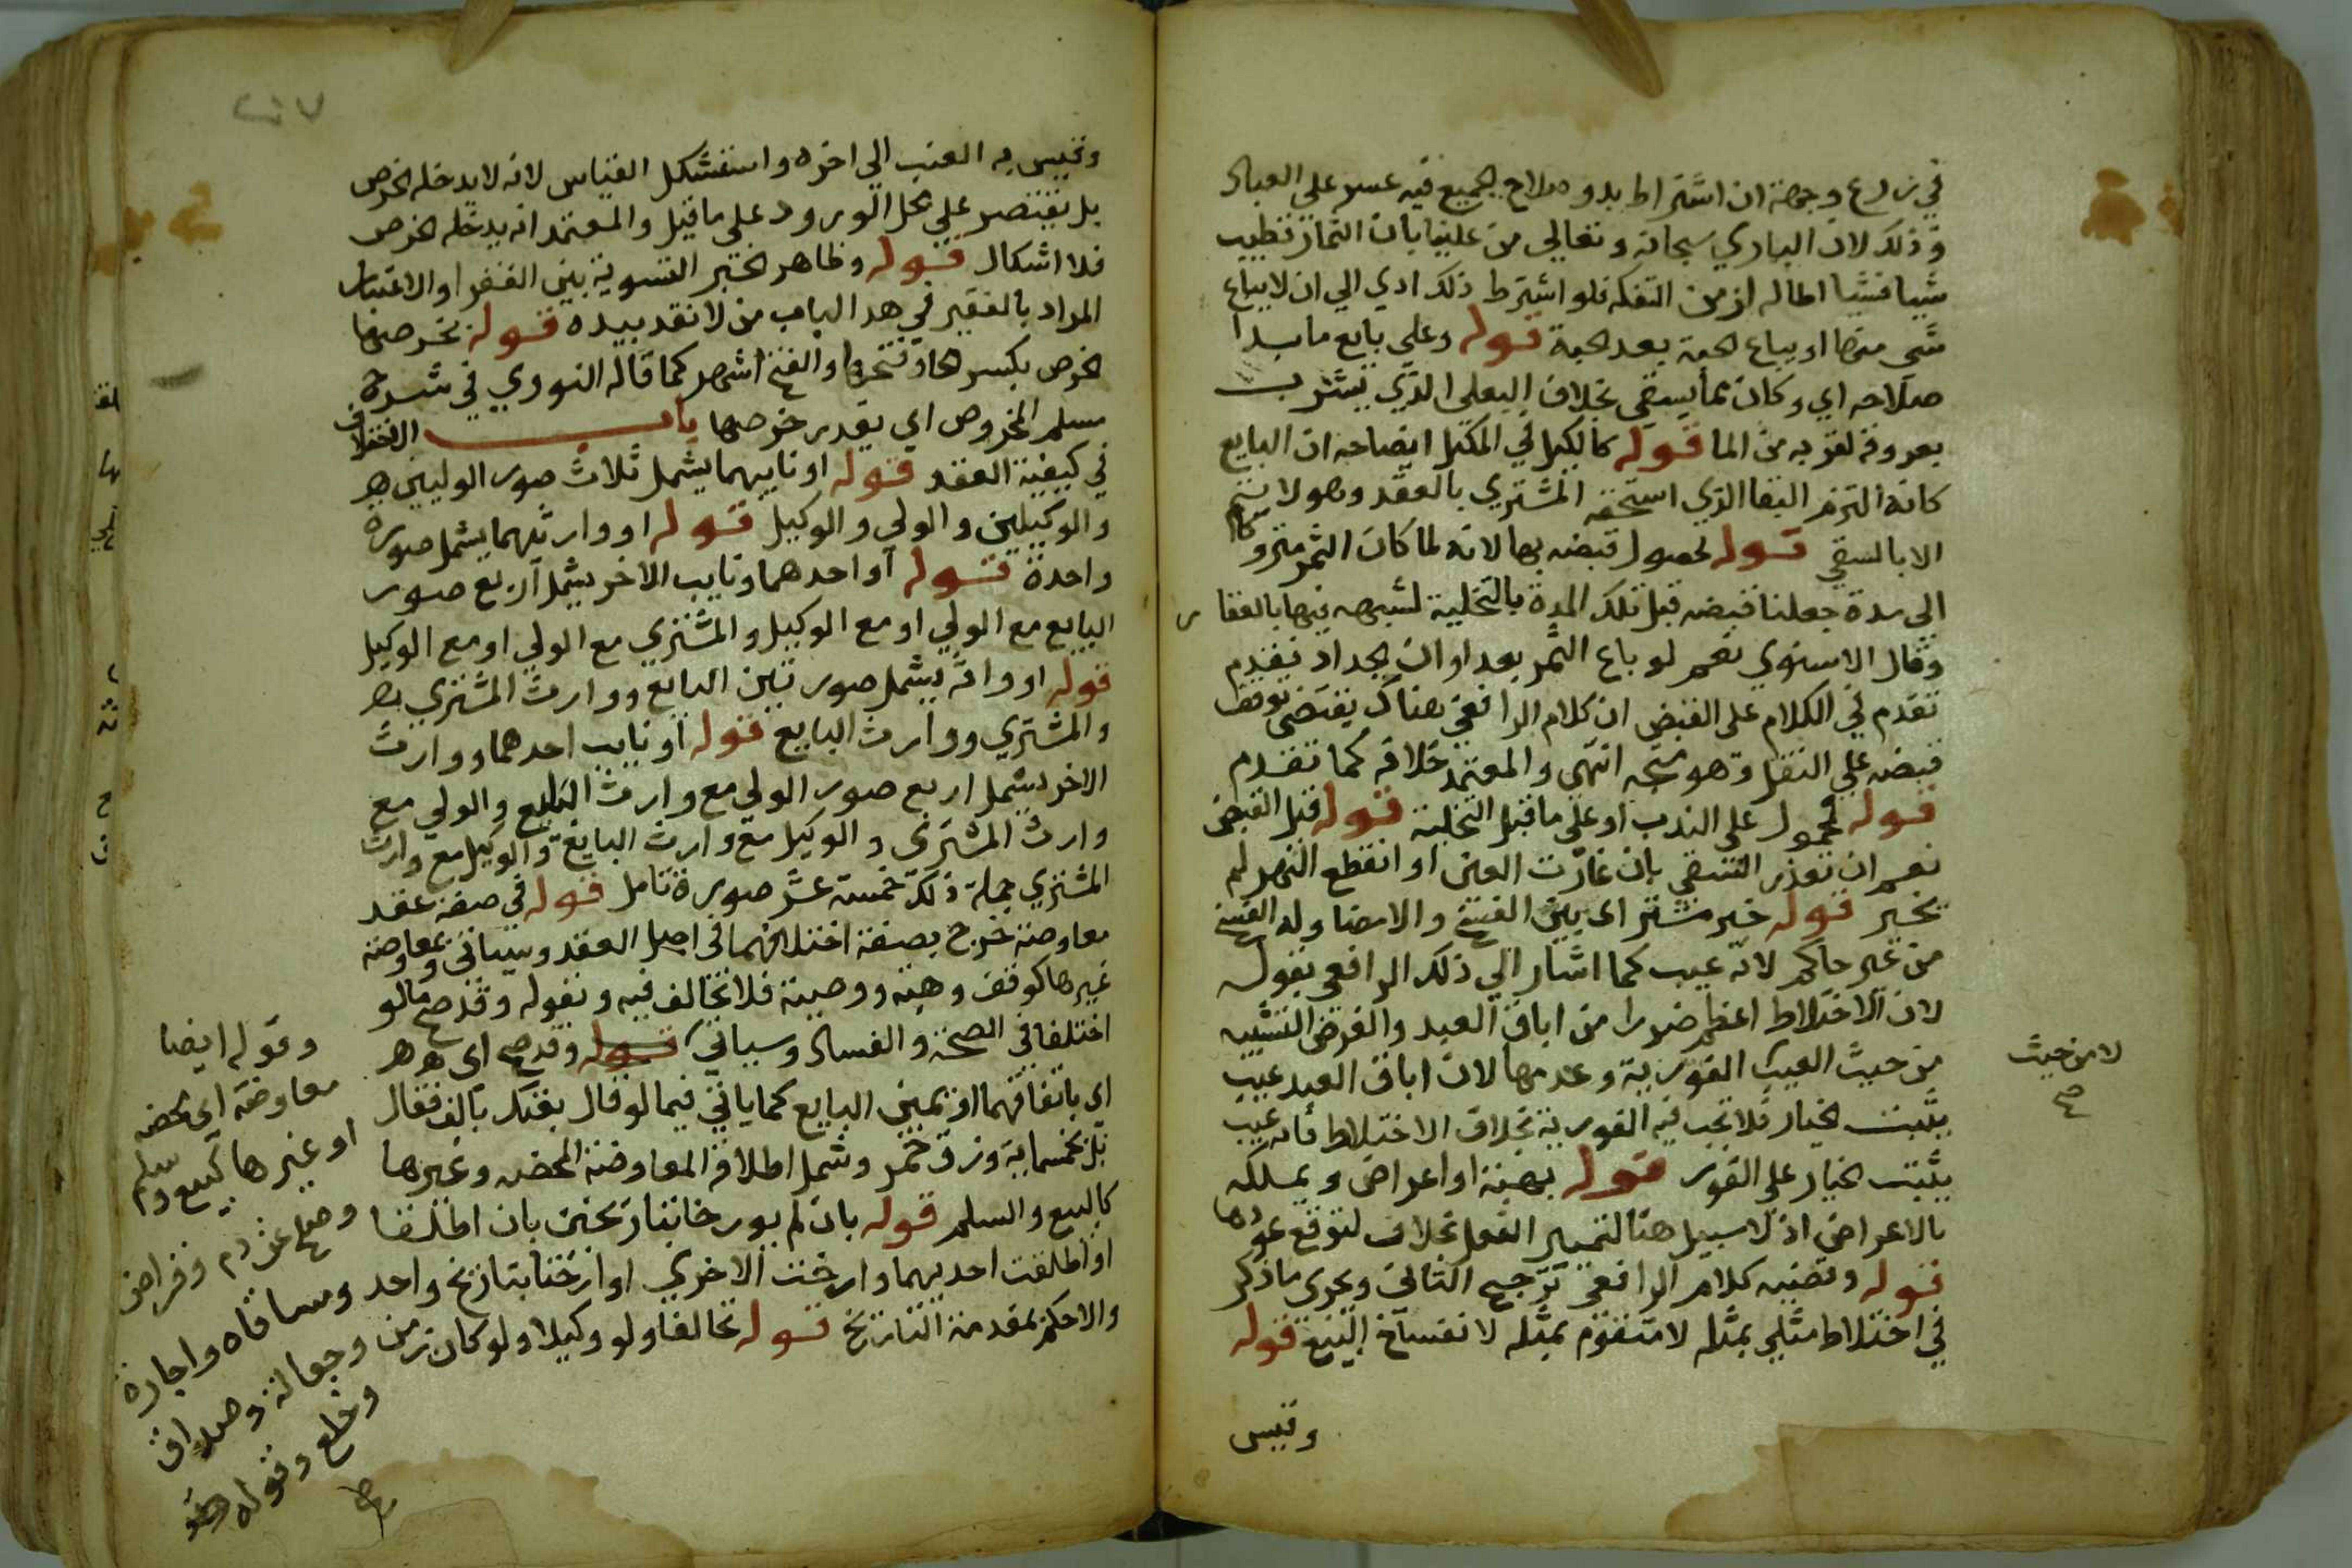 في زرع وجهه ان اشتراط بدو صلاح الجميع فيه عسر على العباد
وذلك لان الباري سبحانه وتعالى من علينا بان الثمار تطيب
شيا فشيا اطالة لزمن التفكه فلو اشترط ذلك ادي الي ان لا يباع
شي منها او يباع الحبة بعد الحبة قوله وعلي بايع ما بدا
صلاحه اي وكان مما يسقي بخلاف البعلي الذي يشرب
بعروقه لقربه من الما قوله كالكيل في المكيل ايضاحه ان البايع
كانه التزم البقا الذي استحقه المشتري بالعقد وهو لا يتم
الا بالسقي قوله لحصول قبضه بها لانه لما كان الثمر متروكا
الي مدة جعلنا قبضه قبل تلك المدة بالتخلية لشبهه فيها بالعقار
وقال الاسنوي نعم لو باع الثمر بعد اوان الجداد فقد
تقدم في الكلام على القبض ان كلام الرافعي هناك يقتضي توقف
قبضه علي النقل وهو متجه انتهي والمعتمد خلافه كما تقدم
قوله محمول على الندب او على ما قبل التخلية قوله قبل القبض
نعم ان تعذر السقي بان غارت العين او انقطع النهر لم
يخير قوله خير مشتر اي بين الفسخ والامضا وله الفسخ
من غير حاكم لانه عيب كما اشار الي ذلك الرافعي بقوله
لان الاختلاط اعظم ضررا من اباق العبد والغرض التشبيه
من حيث العيب الفورية وعدمها لان اباق العبد عيب
لا من حيث
صح
يثبت الخيار فلا تجب فيه الفورية بخلاف الاختلاط فانه عيب
يثبت الخيار على الفور قوله بهبة او اعراض ويملكه
بالاعراض اذ لا سبيل هنا لتمييز الفعل بخلاف لتوقع عودها
قوله وقضية كلام الرافعي ترجيح الثاني ويجري ما ذكر
في اختلاط مثلي بمثله لا متقوم بمثله لانفساخ البيع قوله
وقيس
وقيس به العنب الي اخره واستشكل القياس لانه لا يدخله الخرص
بل يقتصر على محل الورود على ما قيل والمعتمد انه يدخله الخرص
فلا اشكال قوله وظاهر الخبر التسوية بين الفقرا والاغنيا
المراد بالفقير في هذا الباب من لا نقد بيده قوله بخرصها
الخرص بكسر الخا وفتحها والفتح اشهر كما قاله النووي في شرح
مسلم المخروص اي بقدر خرصها باب الاختلاف
في كيفية العقد قوله او ناييهما يشمل ثلاث صور الوليين
والوكيلين والولي والوكيل قوله او وارثهما يشمل صورة
واحدة قوله او احدهما ونايب الاخر يشمل اربع صور
البايع مع الولي او مع الوكيل والمشتري مع الولي او مع الوكيل
قوله او وارثه يشمل صورتين البايع ووارث المشتري
والمشتري ووارث البايع قوله او نايب احدهما ووارث
الاخر يشمل اربع صور الولي مع وارث البايع والولي مع
وارث المشتري والوكيل مع وارث البايع والوكيل مع وارث
المشتري جملة ذلك خمسة عشر صورة تامل قوله في صفة عقد
معاوضة خرج بصفة اختلافهما في اصل العقد وسياتي وبمعاوضة
غيرها كوقف وهبة ووصية فلا تخالف فيه وبقوله وقد صح ما لو
اختلفا في الصحة والفساد وسياتي قوله وقد صح اي هو
اي باتفاقهما او يمين البايع كما ياتي فيما لو قال بعتك بالف فقال
بل بخمسماية وزق خمر وشمل اطلاقه المعاوضة المحضه وغيرها
كالبيع والسلم قوله بان لم يورخا بتاريخين بان اطلقا
او اطلقت احديهما وارخت الاخري او ارختا بتاريخ واحد
والا حكم بمقدمة التاريخ قوله تحالفا ولو وكيلا ولو كان زمن
وقوله ايضا
معاوضة اي محضه
او غيرها كبيع وسلم
وصلح عن دم وقراض
ومساقاه واجارة
وجعالة وصداق
وخلع وقوله
صح